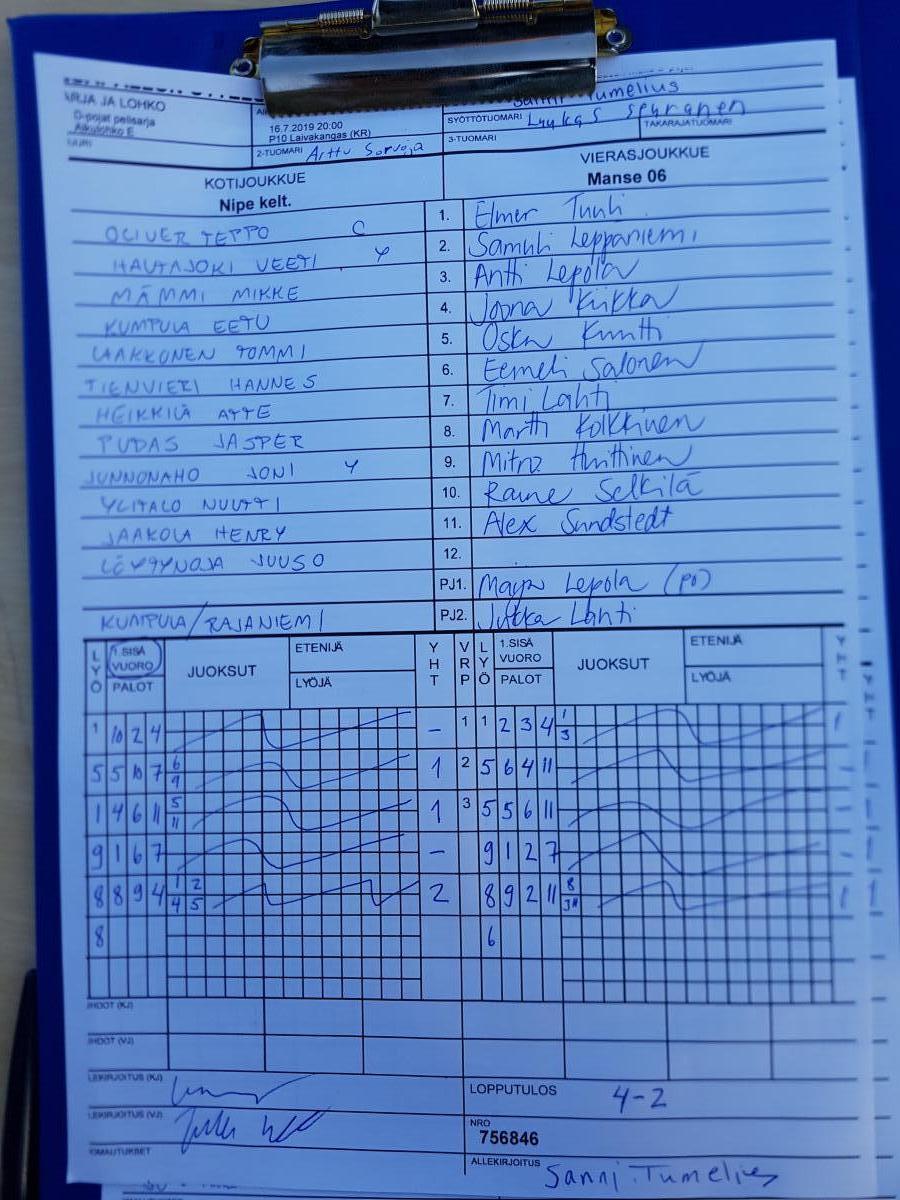 SARJA JA LOHKO
D-pojat pelisarja
Aikulohko E
16.7.2019 20:00
P10 Laivakangas (KR)
2-TUOMARI Arttu Sorvoja
Sanni Tumelius
SYÖTTÖTUOMARI Luukas Spuranen
TAKARAJATUOMARI
3-TUOMARI
KOTIJOUKKUE VIERASJOUKKUE
Nipe kelt. Manse 06
OLIVER TEPPO C 1. Elmer Tuuli
HAUTAJOKI VEETI Y 2. Samuli Leppaniemi
MÄMMI MIKKE 3. Antti Lepola
KUMPULA EETU 4. Joona Kiikka
LAAKKONEN TOMMI 5. Oska Kuntti
TIENVIERI HANNES 6. Eemeli Salonen
HEIKKILÄ ATTE 7. Timi Lahti
PUDAS JASPER 8. Martti Kolkkinen
JUNNONAHO JONI Y 9. Mitro Huttinen
YLITALO NUUTTI 10. Raine Selkilä
JAAKOLA HENRY 11. Alex Sundstedt
LÖYTYNOJA JUUSO 12.
PJ1. Maija Lepola (po)
KUMPULA/RAJANIEMI PJ2. Jukka Lahti
LYÖ 1.SISÄ VUORO PALOT JUOKSUT ETENIJÄ LYÖJÄ YHT VRP LYÖ 1.SISÄ VUORO PALOT JUOKSUT ETENIJÄ LYÖJÄ YHT
1 10 2 4 – 1 1 2 3 4 1/3 1
5 5 10 7 6/9 1 2 5 6 4 11 –
1 4 6 11 5/11 1 3 5 5 6 11 –
9 1 6 7 – 9 1 2 7 –
8 8 9 4 1/4 2/5 2 8 9 2 11 8/3 1
8 6
LEKIRJOITUS (KJ)
LOPPUTULOS 4-2
LEKIRJOITUS (VJ)
NRO
756846
ALLEKIRJOITUS Sanni Tumelius